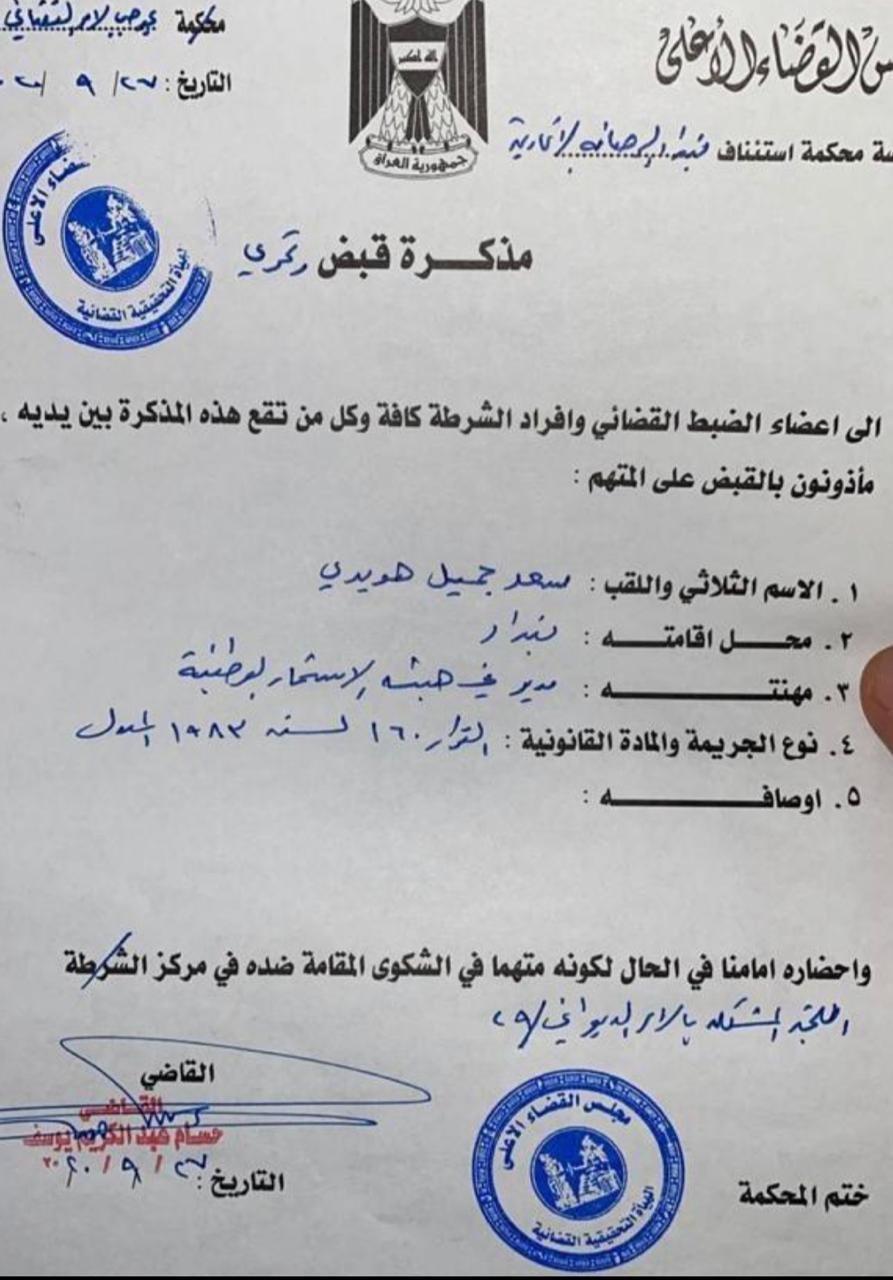 س القضاء الأعلى
سة محكمة استئناف بغداد الرصافة الاتحادية
محكمة
التاريخ : ٢٧ / ٩ /
الله اكبر
جمهورية العراق
القضاء الاعلى
الهيأة التحقيقية القضائية
مذكـــرة قبض وتحري
الى اعضاء الضبط القضائي وافراد الشرطة كافة وكل من تقع هذه المذكرة بين يديه ،
مأذونون بالقبض على المتهم :
١ . الاسم الثلاثي واللقب : سعد جميل هويدي
٢ . محـــــل اقامتــــــه : بغداد
٣ . مهنتـــــــــــــــــه : مدير في هيئة الاستثمار الوطنية
٤ . نوع الجريمة والمادة القانونية : القرار ١٦٠ لسنة ١٩٨٣ المعدل
٥ . اوصافـــــــــــــــه :
واحضاره امامنا في الحال لكونه متهما في الشكوى المقامة ضده في مركز الشرطة
اللجنة المشكلة بالامر الديواني / ٢٩
القاضي
القاضي
حسام عبد الكريم يوسف
التاريخ : ٢٧ / ٩ / ٢٠٢٠
مجلس القضاء الاعلى
الهيأة التحقيقية القضائية
ختم المحكمة